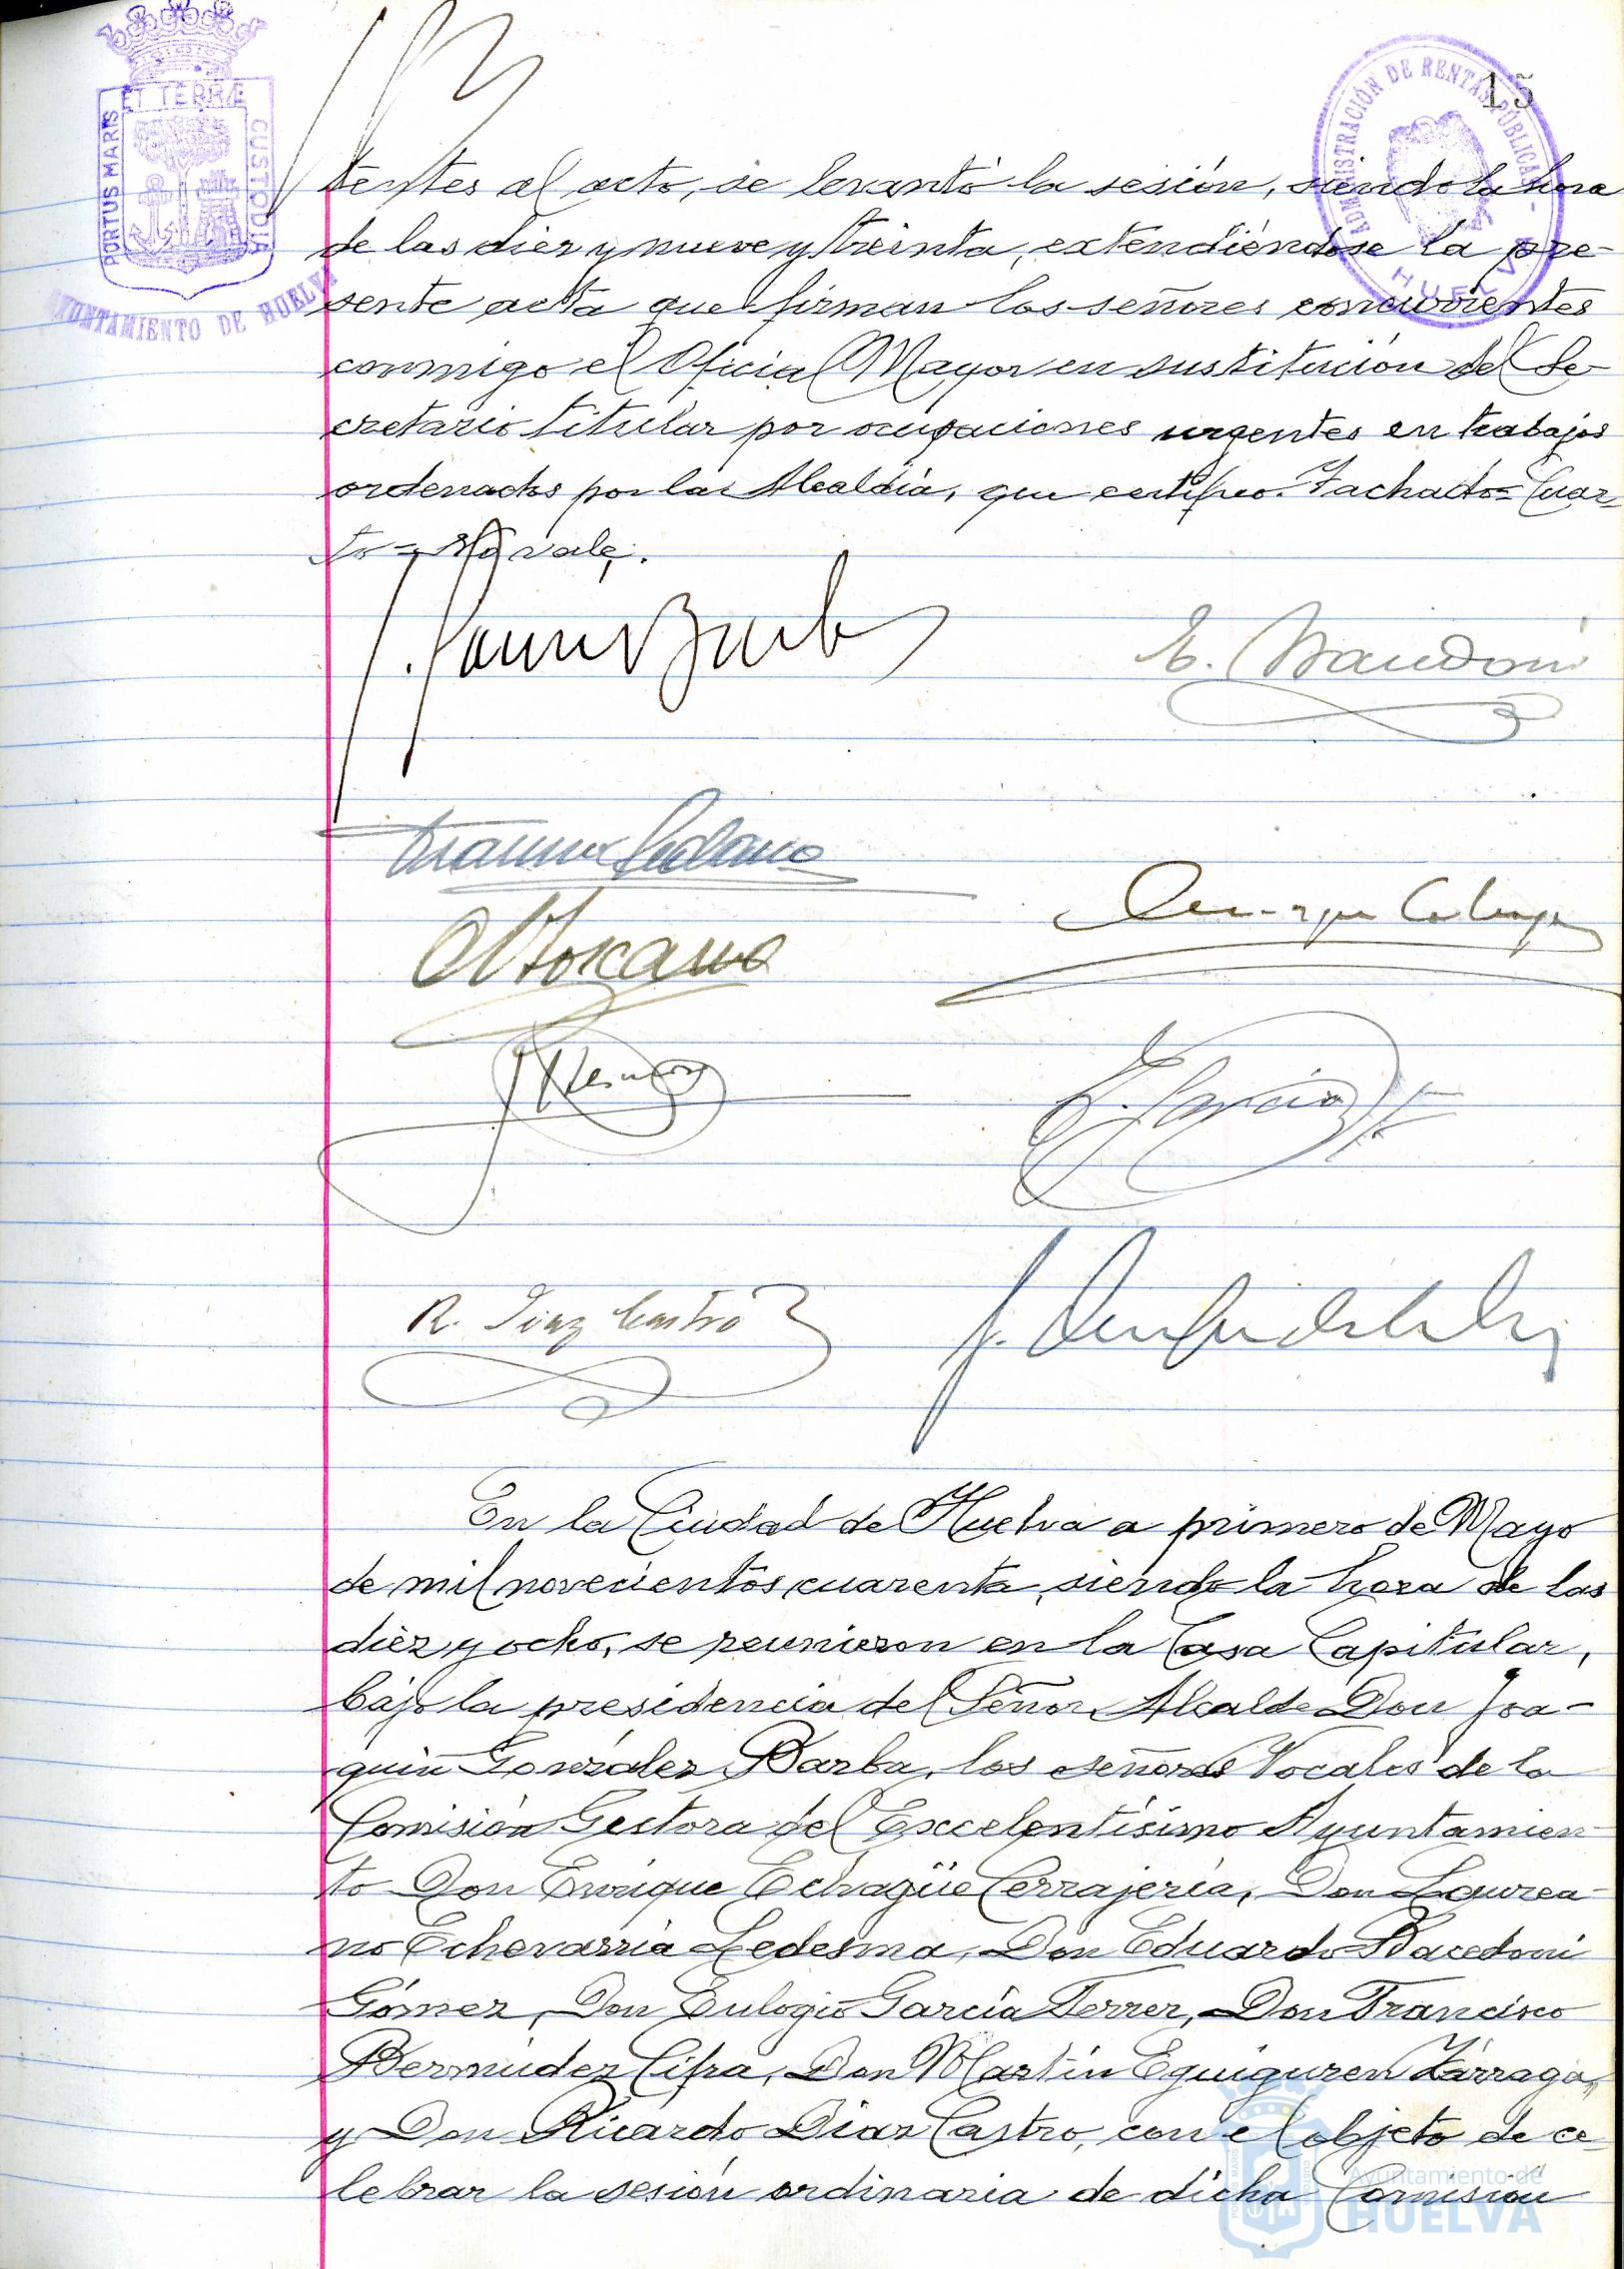 15
ET TERRÆ
PORTUS MARIS
CUSTODIA
AYUNTAMIENTO DE HUELVA
ADMINISTRACIÓN DE RENTAS PÚBLICAS
HUELVA
tentes al acto, se levantó la sesión, siendo la hora
de las diez y nueve y treinta, extendiéndose la pre-
sente acta que firman los señores concurrentes
conmigo el Oficial Mayor en sustitución del Se-
cretario titular por ocupaciones urgentes en trabajos
ordenados por la Alcaldía, que certifico. Tachado = Cuar-
to = No vale.
R. Diaz Castro
En la Ciudad de Huelva a primero de Mayo
de mil novecientos cuarenta, siendo la hora de las
diez y ocho, se reunieron en la Casa Capitular,
bajo la presidencia del Señor Alcalde Don Joa-
quín González Barba, los señores Vocales de la
Comisión Gestora del Excelentísimo Ayuntamien-
to Don Enrique Echagüe Cerrajería, Don Laurea-
no Echevarría Ledesma, Don Eduardo Bacedoni
Gómez, Don Eulogio García Ferrer, Don Francisco
Bermúdez Cifra, Don Martín Eguiguren Zárraga,
y Don Ricardo Díaz Castro, con el objeto de ce-
lebrar la sesión ordinaria de dicha Comisión
Ayuntamiento de
HUELVA